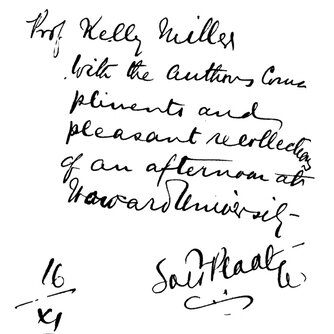 Prof Kelly Miller
With the Authors Com
pliments and
pleasant recollections
of an afternoon at
Howard University
Sol T Plaatje
16
XI